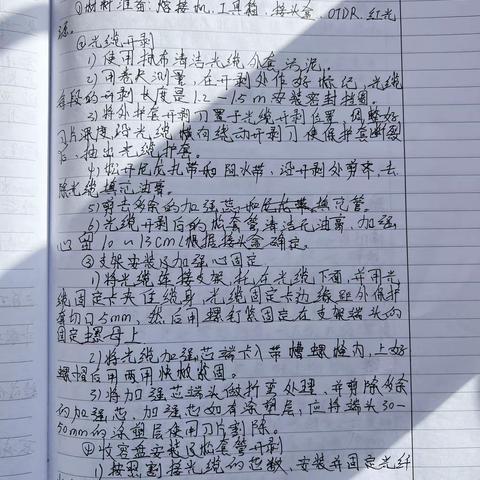 ①材料准备:熔接机、工具箱、接头盒、OTDR、红光
源。
②光缆开剥
1)使用抹布清洁光缆外套污泥。
2)用卷尺测量,在开剥处作好标记,光缆
每段的开剥长度是1.2-1.5m安装密封挡圈。
3)将外护套开剥刀置于光缆开剥位置,调整好
刀片深度沿光缆横向绕动开剥刀使保护套断裂
后,抽出光缆护套。
4)松开尼龙扎带和阻水带,沿开剥处剪齐,去
除光缆填充油膏。
5)剪去多余的加强芯,填充管。
6)光缆开剥后的松套管清洁完油膏,加强
心留10~13cm(根据接头盒确定。
③支架安装及加强心固定
1)将光缆连接支架托在光缆下面,并用光
缆固定卡夹住缆身,光缆固定卡边缘距外保护
套切口5mm,然后用螺钉紧固定在支架端头的
固定螺母上
2)将光缆加强芯端卡入带槽螺栓内,上好
螺帽后用两用快扳紧固。
3)将加强芯端头做折弯处理,并剪除多余
的加强芯,加强芯如有涂塑层,应将端头30-
50mm的涂塑层使用刀片割除。
④收容盘安装及松套管开剥
1)按照割接光缆的芯数,安装并固定光纤